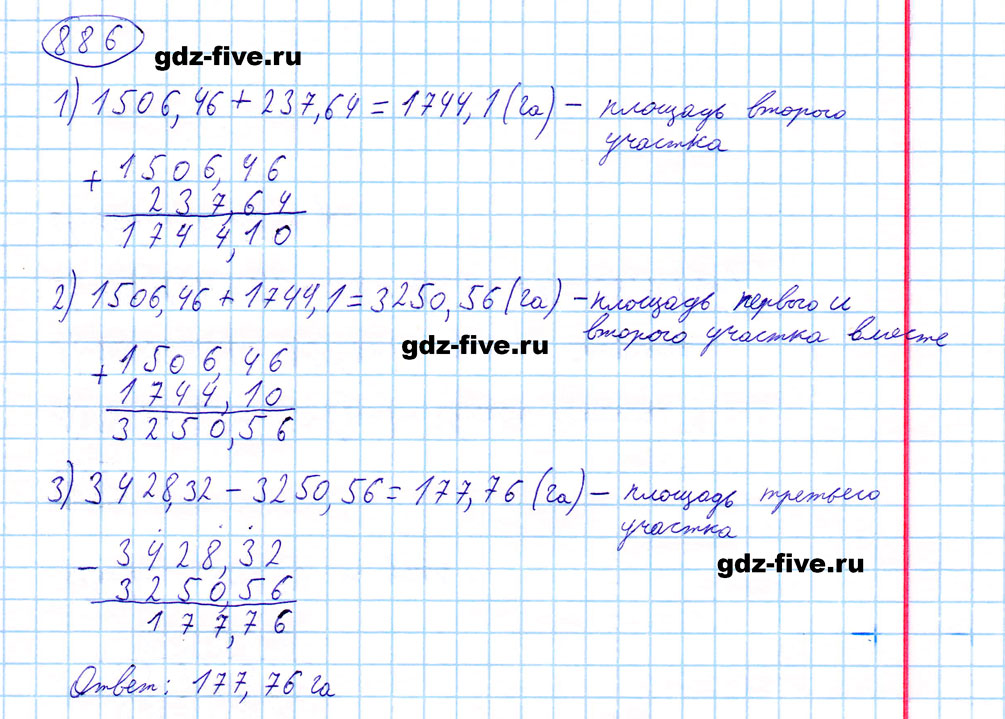 886
gdz-five.ru
1) 1506,46 + 237,64 = 1744,1 (га) – площадь второго
участка
+ 1506,46
237,64
1744,10
2) 1506,46 + 1744,1 = 3250,56 (га) – площадь первого и
второго участка вместе
gdz-five.ru
+ 1506,46
1744,10
3250,56
3) 3428,32 – 3250,56 = 177,76 (га) – площадь третьего
участка
gdz-five.ru
– 3428,32
3250,56
177,76
Ответ: 177,76 га